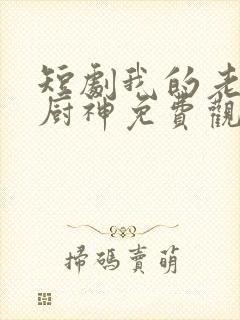 短劇我的老
廚神免費觀
掃碼賣萌